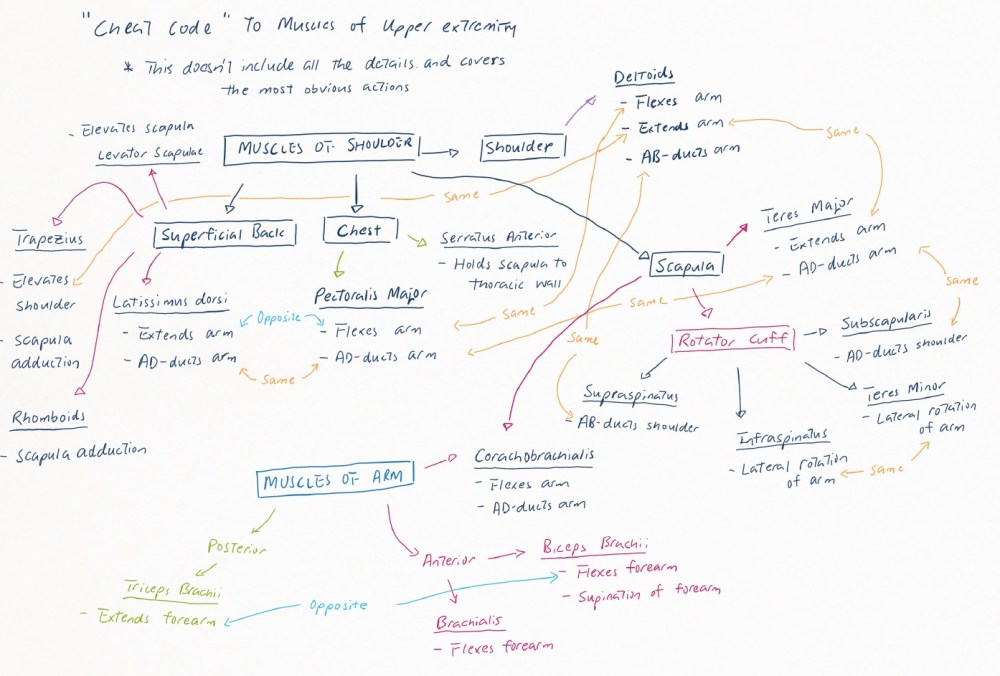 "Cheat code" To Muscles of Upper extremity
* This doesn't include all the details and covers
the most obvious actions
Deltoids
- Flexes arm
- Extends arm
- AB-ducts arm
Same
- Elevates scapula
Levator Scapulae
MUSCLES OF SHOULDER
Shoulder
Same
Trapezius
- Elevates
shoulder
- scapula
adduction
Superficial Back
Chest
Serratus Anterior
- Holds scapula to
thoracic wall
Scapula
Teres Major
- Extends arm
- AD-ducts arm
Same
Latissimus dorsi
- Extends arm
- AD-ducts arm
Opposite
Same
Pectoralis Major
- Flexes arm
- AD-ducts arm
Same
Same
Same
Rotator Cuff
Subscapularis
- AD-ducts shoulder
Supraspinatus
- AB-ducts shoulder
Teres Minor
- Lateral rotation
of arm
Infraspinatus
- Lateral rotation
of arm
Same
Rhomboids
- Scapula adduction
MUSCLES OF ARM
Corachobrachialis
- Flexes arm
- AD-ducts arm
Posterior
Triceps Brachii
- Extends forearm
Opposite
Anterior
Biceps Brachii
- Flexes forearm
- Supination of forearm
Brachialis
- Flexes forearm